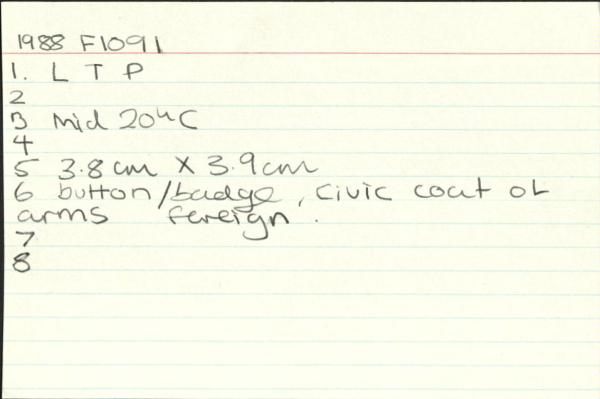 1988 F1091
1. L T P
2
3 Mid 20th C
4
5 3.8cm X 3.9cm
6 button/badge, civic coat of
arms foreign.
7
8